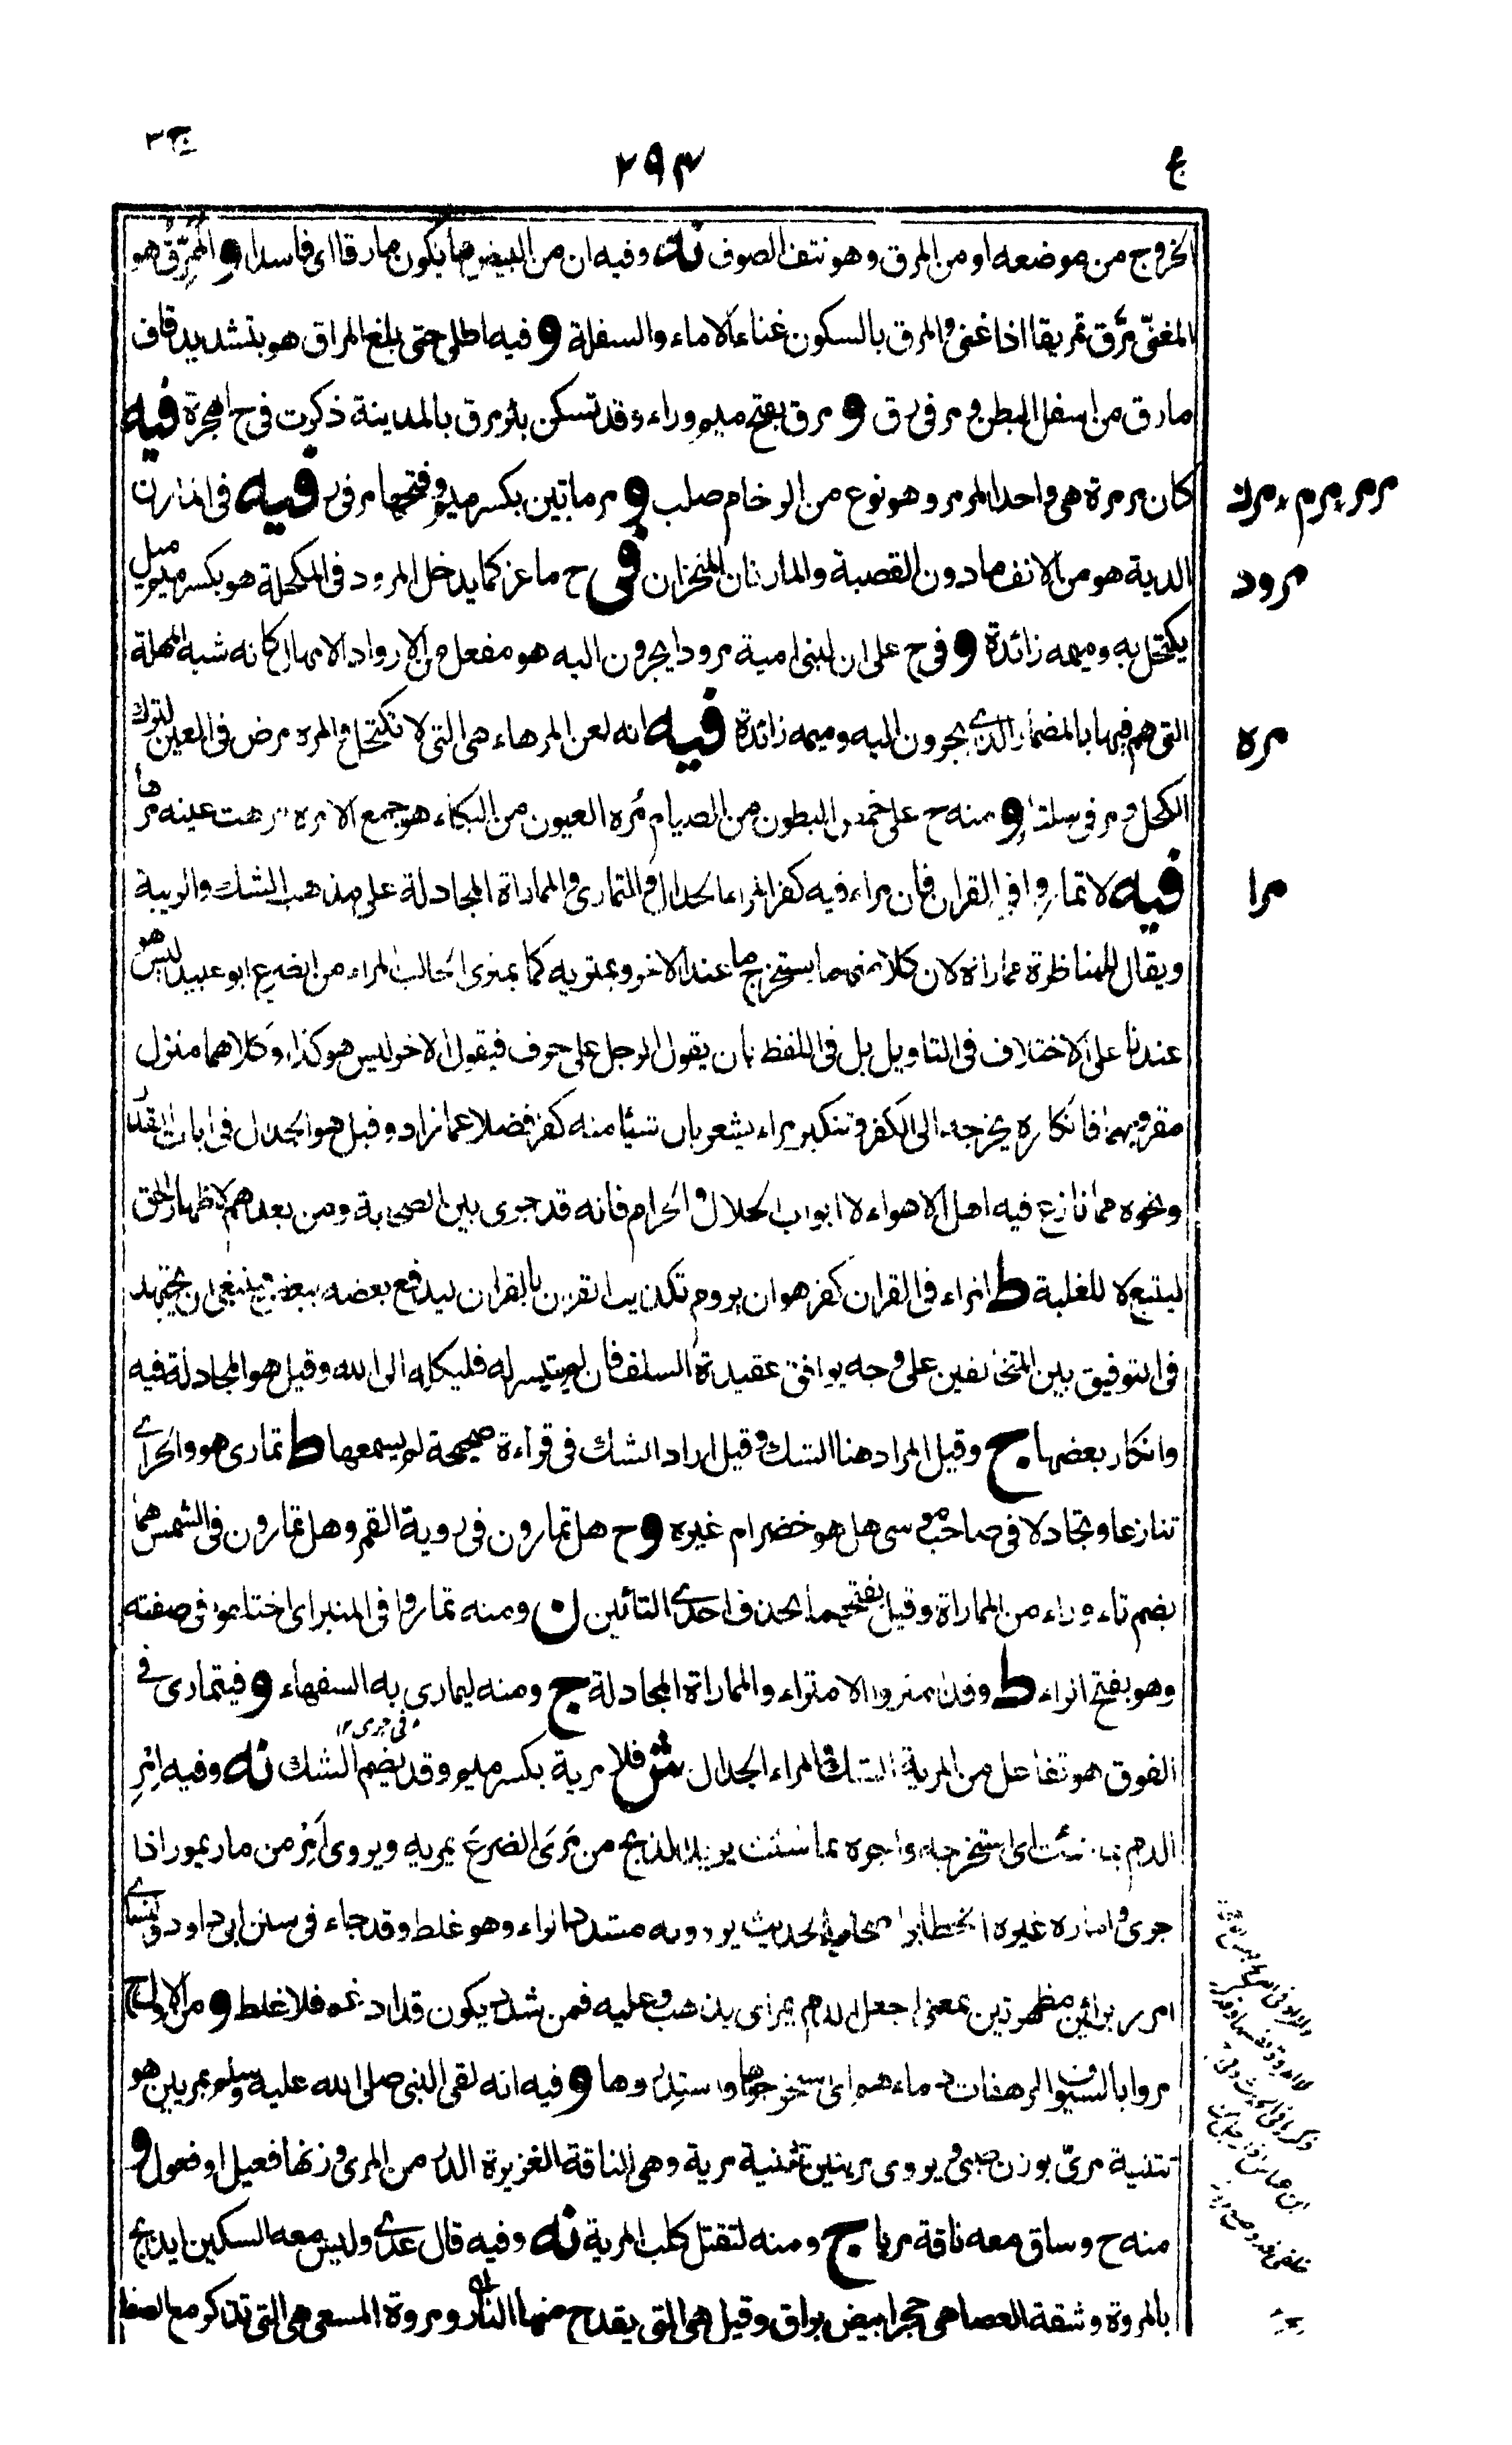 ج ٣
٢٩٣
ع
الخروج من موضعه او من المرق وهو نتف الصوف نه وفيه ان من البيض ما يكون مارقا اى فاسدا و المُمرِّق هو
المغنّى مرّق تمريقا اذا غنى و المرق بالسكون غناء الاماء والسفلة و فيه اطلى حتى بلغ المراق هو بتشديد قاف
مارق من اسفل البطن و مر فى رق و مرق بفتح ميم وراء وقد تسكن بئر مرق بالمدينة ذكرت فى ح الهجرة فيه
كان مرمرة هى واحد المرمر وهو نوع من الرخام صلب و مرماتين بكسر ميم وفتحها مر فى ر فيه فى المارن
الدية هو من الانف ما دون القصبة والمارنان المنخران فى ح ماعز كما يدخل المرود فى المكحلة هو بكسر ميم ميل
يكتحل به وميمه زائدة و فى ح على ان لبنى امية مرودا يجرون اليه هو مفعل من الارواد الامهال كانه شبه المهلة
التى هم فيها بالمضمار الذى يجرون اليه وميمه زائدة فيه انه لعن المرهاء هى التى لا تكتحل و المره مرض فى العين لترك
الكحل و مر فى سلتا و منه ح على خمص البطون من الصيام مُره العيون من البكاء هو جمع الامره مرهت عينه مرها
فيه لا تماروا فى القران فان مراء فيه كفر المراء الجدال و التمارى و المماراة المجادلة على مذهب الشك والريبة
ويقال للمناظرة مماراة لان كلا منهما يستخرج ما عند الاخر ويمتريه كما يمترى الحالب المراء من الضرع ابو عبيد ليس هو
عندنا على الاختلاف فى التاويل بل فى اللفظ بان يقول الرجل على حرف فيقول الاخر ليس هو كذا وكلاهما منزل
مقرو بهما فانكاره يخرجه الى الكفر و تنكير مراء يشعر بان شيئا منه كفر فضلا عما زاد وقيل هو الجدال فى ايات القدر
ونحوه مما نازع فيه اهل الاهواء لا ابواب الحلال و الحرام فانه قد جرى بين الصحابة ومن بعدهم لاظهار الحق
ليتبع لا للغلبة ط المراء فى القران كفر هو ان يروم تكذيب القران بالقران ليدفع بعضه ببعض فينبغى ان يجتهد
فى التوفيق بين المتخالفين على وجه يوافق عقيدة السلف فان لم يتيسر له فليكله الى الله وقيل هو المجادلة فيه
وانكار بعضها ج وقيل المراد هنا الشك و قيل اراد الشك فى قراءة صحيحة لم يسمعها ط تمارى هو والحر اى
تنازعا وتجادلا فى صاحب موسى هل هو خضر ام غيره و ح هل تمارون فى روية القمر وهل تمارون فى الشمس هما
بضم تاء وراء من المماراة وقيل بفتحهما بحذف احدى التائين ن ومنه تماروا فى المنبر اى اختلفوا فى صفته
وهو بفتح الراء ط وقد يمترون الامتراء والمماراة المجادلة ج ومنه ليمارى به السفهاء و فيتمارى فى
الفوق هو تفاعل من المرية الشك و المراء الجدال ش فلا مرية بكسر ميم وقد يضم الشك نه وفيه اِمْرِ
الدم بما شئت اى استخرجه واجره بما شئت يريد الذبح من مَرَى الضرع يمريه ويروى اَمِرْ من مار يمور اذا
جرى و اماره غيره الخطابى اصحاب الحديث يروونه مشدد الراء وهو غلط وقد جاء فى سنن ابى داود و النسائى
امرر برائين مظهرتين بمعنى اجعل الدم يمر اى يذهب وعليه فمن شدد يكون قد ادغم فلا غلط و من الاول ح
مروا بالسيوف المرهفات دماءهم اى استخرجوها واستدروها و فيه انه لقى النبى صلى الله عليه وسلم بمريين هو
تثنية مرىّ بوزن صبى و يروى مريتين تثنية مرية وهى الناقة الغزيرة الدر من المرى و زنها فعيل او فعول و
منه ح وساق معه ناقة مريا ج ومنه لتقتل كلب المرية نه وفيه قال عدى وليس معه السكين ايذبح
بالمروة وشقة العصا هى حجر ابيض براق وقيل هى التى يقدح منها النار و مروة المسعى هى التى تذكر مع الصفا
مرمر مرم مرن
مرود
مره
مرا
فى جرى ١٢